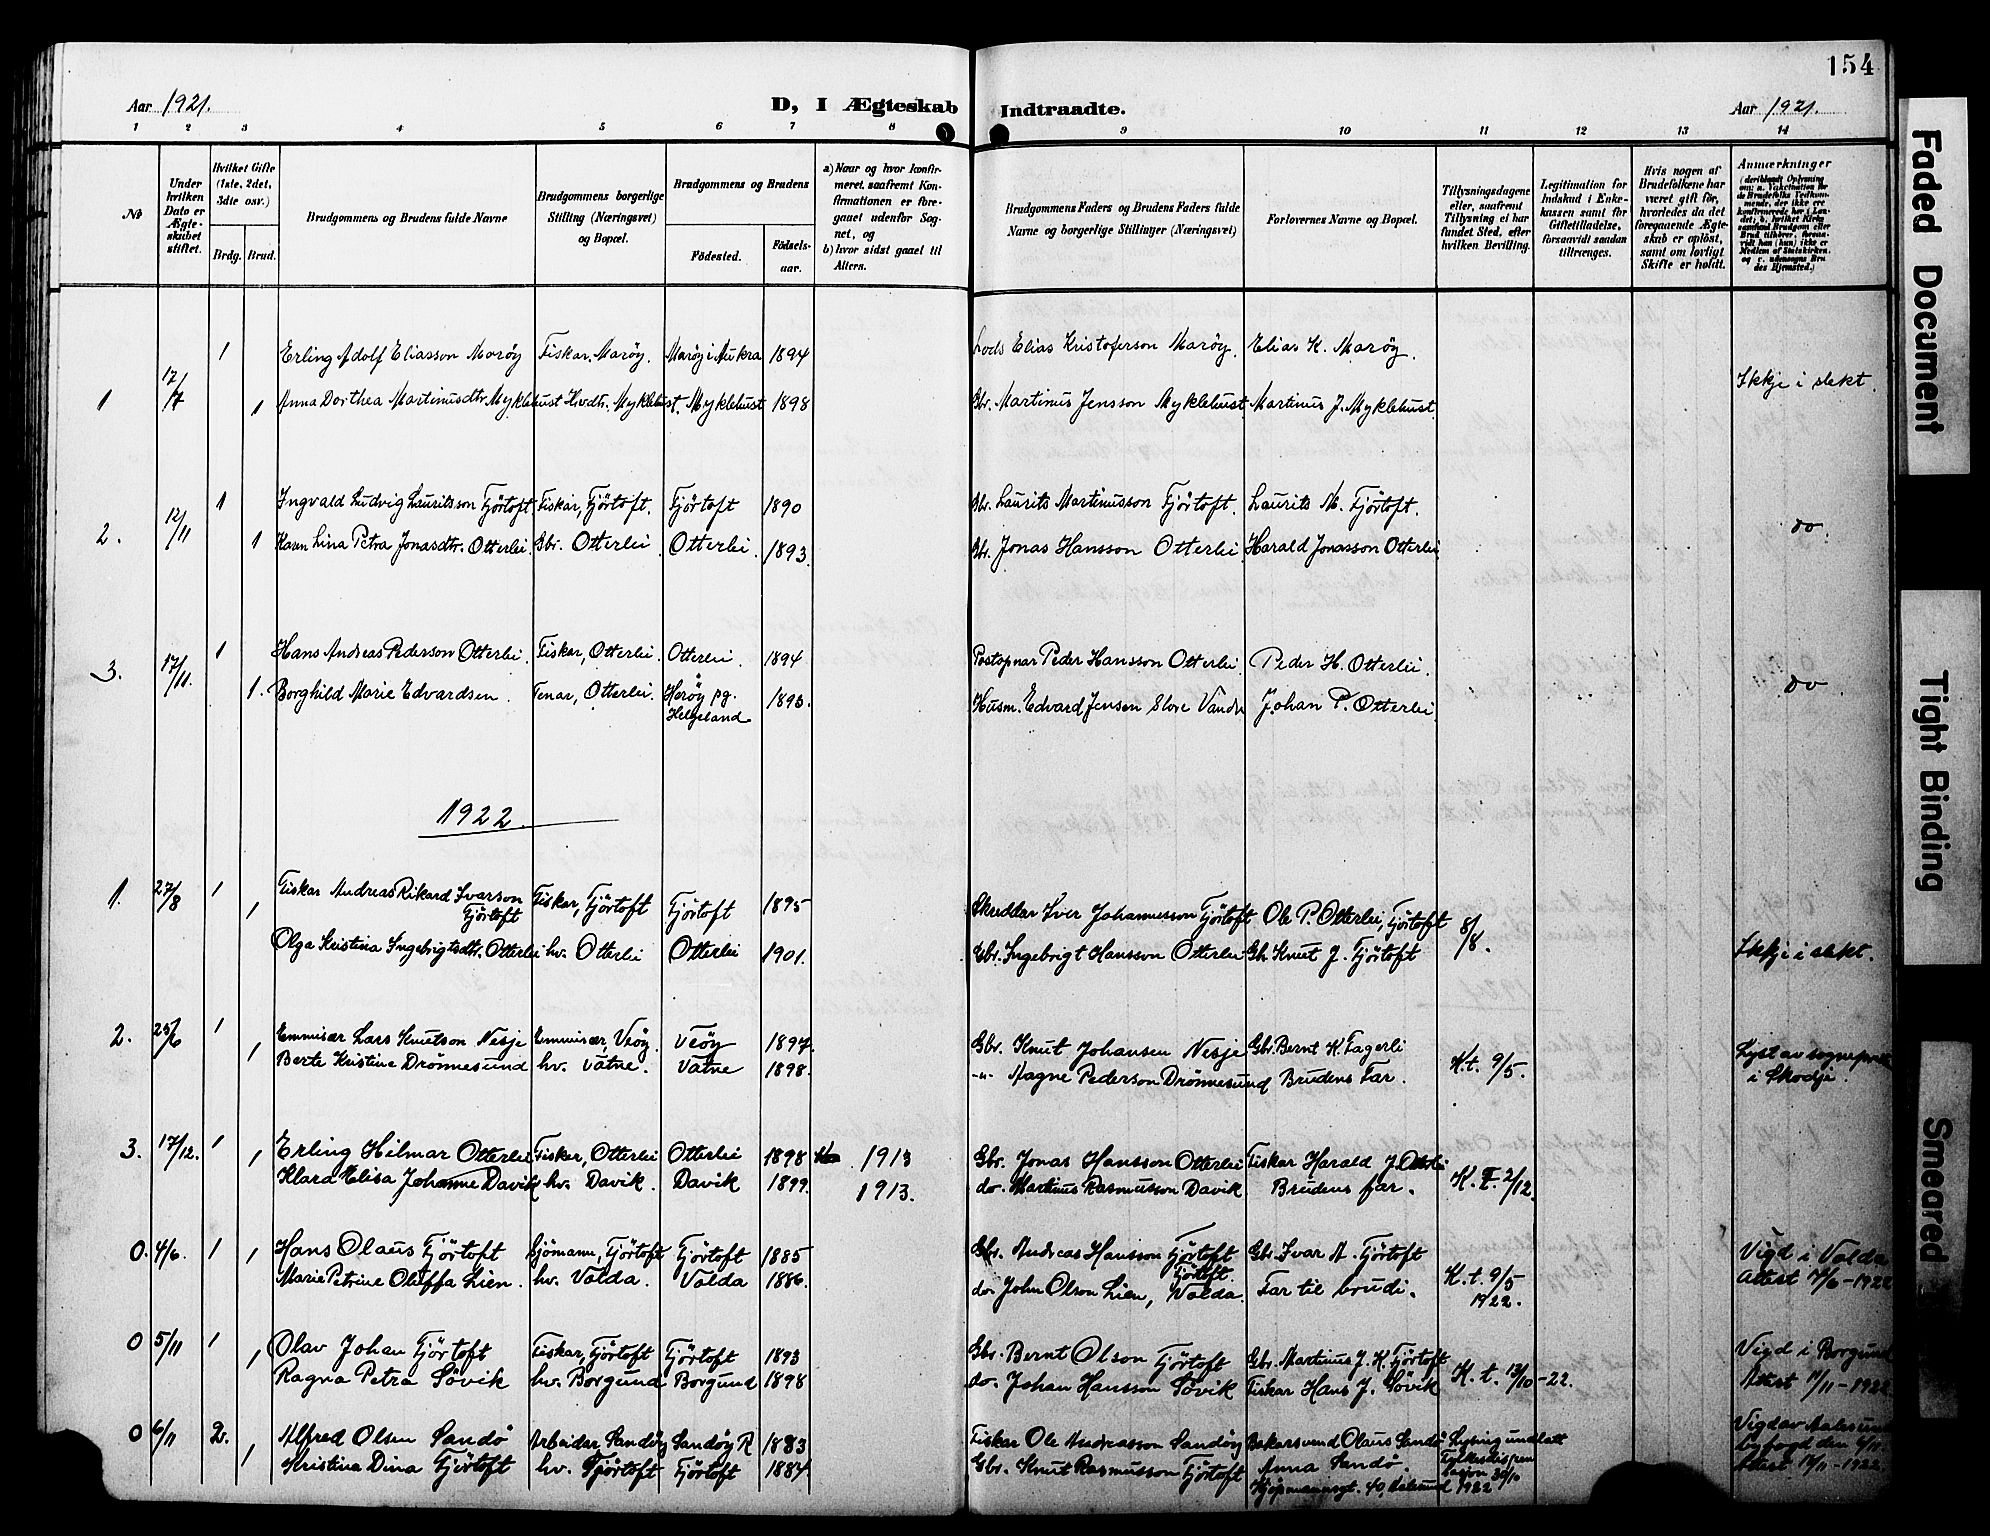 154
Aar 1921. D, I Ægteskab Indtraadte. Aar 1921.
1 2 3 4 5 6 7 8 9 10 11 12 13 14
№
Under hvilken Dato er Ægteskabet stiftet.
Hvilket Gifte (1ste, 2det, 3dte osv.)
Brdg. Brud.
Brudgommens og Brudens fulde Navne
Brudgommens borgerlige Stilling (Næringsvei) og Bopæl.
Brudgommens og Brudens
Födested. Födsels-aar.
a) Naar og hvor konfirmeret, saafremt Konfirmationen er foregaaet udenfor Sognet, og
b) hvor sidst gaaet til Alters.
Brudgommens Faders og Brudens Faders fulde Navne og borgerlige Stillinger (Næringsvei)
Forlovernes Navne og Bopæl.
Tillysningsdagene eller, saafremt Tillysning ei har fundet Sted, efter hvilken Bevilling.
Legitimation for Indskud i Enkekassen samt for Giftetilladelse, forsaavidt saadan tiltrænges.
Hvis nogen af Brudefolkene har været gift för, hvorledes da det foregaaende Ægteskab er oplöst, samt om lovligt Skifte er holdt.
Anmærkninger
1 17/7 1 Erling Adolf Eliasson Maröy Fiskar. Maröy. Maröy i Aukra 1894 Lods Elias Kristoferson Maröy. Elias K. Maröy.
1 Anna Dorthea Martinusdtr. Myklebust Hvdtr. Myklebust. Myklebust 1898 Gbr. Martinus Jensson Myklebust Martinus J. Myklebust. Ikkje i slekt.
2. 12/11 1 Ingvald Ludvig Lauritsson Fjörtoft Fiskar, Fjörtoft. Fjörtoft 1890 Gbr. Laurits Martinusson Fjörtoft. Laurits M. Fjörtoft.
1 Karen Lina Petra Jonasdtr. Otterlei. Gbr. Otterlei Otterlei. 1893. Gbr. Jonas Hansson Otterlei Harald Jonasson Otterlei do.
3. 17/11. 1 Hans Andreas Pederson Otterlei. Fiskar, Otterlei. Otterlei. 1894 Postopnar Peder Hansson Otterlei. Peder H. Otterlei
1. Borghild Marie Edvardsen. Tenar, Otterlei. Heröy pg. Helgeland 1893. Husm. Edvard Jensen Store Johan P. Otterlei. do.
1922.
1. 27/8 1 1 Fiskar Andreas Rikard Ivarson Fjörtoft Fiskar, Fjörtoft Fjörtoft 1895 Skreddar Iver Johannesson Fjörtoft Ole P. Otterlei, Fjörtoft 8/8.
Olga Kristina Ingebrigtsdtr. Otterlei hv. Otterlei Otterlei 1901. Gbr. Ingebrigt Hansson Otterlei Gbr Knut J. Fjörtoft Ikkje i slekt.
2. 25/6 1 1 Emmisær Lars Knutson Nesje Emmisær, Veöy. Veöy 1897. Gbr. Knut Johansen Nesje Gbr. Bernt K. Fagerli K.t. 9/5. Lyst av sogneprest
Berte Kristine Drönnesund hv. Vatne. Vatne 1898. -"- Magne Pederson Drönnesund Brudens Far. i Skodje.
3. 17/12. 1 1 Erling Hilmar Otterlei Fiskar, Otterlei Otterlei 1898 1913 Gbr. Jonas Hansson Otterlei Fiskar Harald J Otterlei K. F. 2/12.
Klara Elisa Johanne Davik hv. Davik. Davik 1899. 1913. do. Martinus Rasmusson Davik Brudens far.
0. 4/6. 1 1 Hans Olaus Fjörtoft Sjömann, Fjörtoft Fjörtoft 1885 Gbr. Andreas Hansson Fjörtoft Gbr. Ivar A. Fjörtoft Vigd i Volda
Fjörtoft.
Marie Petrine Oliffa Lien. hv. Volda. Volda 1886. do. John Olson Lien, Volda. Far til brudi. K.t. 9/5 1922. Attest 17/6 - 1922
0 5/11 1 1 Olav Johan Fjörtoft Fiskar, Fjörtoft Fjörtoft 1893 Gbr. Bernt Olson Fjörtoft Gbr. Martinus J. K. Fjörtoft Vigd i Borgund
Ragna Petra Sövik hv. Borgund Borgund 1898 do. Johan Hansson Sövik Fiskar Hans J. Sövik K. t. 13/10 - 22. Attest 17/11 - 1922
0 6/11 2. 1 Alfred Olsen Sandö Arbeidar Sandöy Sandöy R 1883 Fiskar Ole Andreasson Sandöy Bakarsvend Olaus Sandö Lysing undlatt Vigd av Aalesund
Kristina Dina Fjörtoft hv. Fjörtoft Fjörtoft 1884 Gbr. Knut Rasmusson Fjörtoft Anna Sandö. Fylkesdispensasjon 30/10 1922 byfogd den 6/11
Kjöpmannsgt. 40, Aalesund Attest 17/11 - 1922.
Faded Document
Tight Binding
Smeared